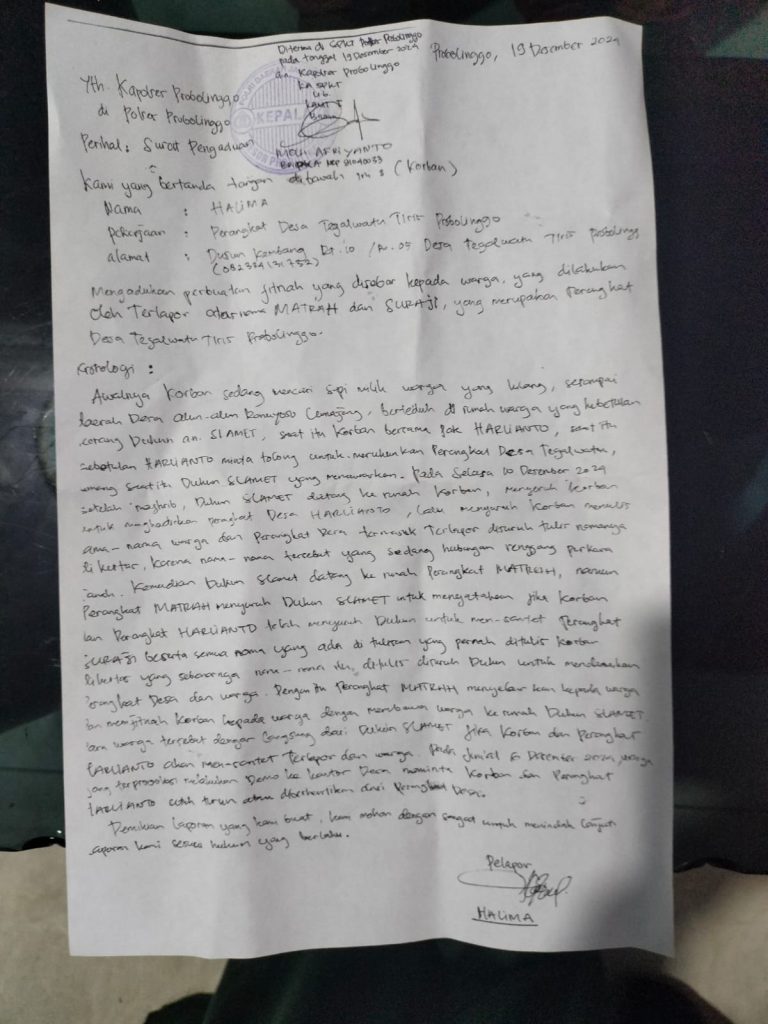 Diterima di SPKT Polres Probolinggo
pada tanggal 19 Desember 2024
an. Kapolres Probolinggo
KA SPKT
ub.
KANIT I
KEPAL
MOH AFRIYANTO
Probolinggo, 19 Desember 2024
Yth. Kapolres Probolinggo
di Polres Probolinggo
Perihal : Surat Pengaduan
Kami yang bertanda tangan dibawah ini : (Korban)
Nama : HALIMA
Pekerjaan : Perangkat Desa Tegalwatu Tiris Probolinggo
alamat : Dusun Kembang Rt.10 /Rw.05 Desa Tegalwatu Tiris Probolinggo
Mengadukan perbuatan fitnah yang disebar kepada warga, yang dilakukan
oleh Terlapor atas nama MATRAH dan SURAJI, yang merupakan Perangkat
Desa Tegalwatu Tiris Probolinggo.
Kronologi :
Awalnya Korban sedang mencari sapi milik warga yang hilang, sesampai
daerah Desa berteduh di rumah warga yang kebetulan
seorang Dukun an. SLAMET, saat itu Korban bersama Pak HARLIANTO, saat itu
sebetulan HARLIANTO minta tolong untuk Perangkat Desa Tegalwatu,
saat itu Dukun SLAMET yang menawarkan. Pada Selasa 10 Desember 2024
setelah maghrib, Dukun SLAMET datang ke rumah Korban, menyuruh Korban
untuk menghadirkan perangkat Desa HARLIANTO, lalu menyuruh Korban menulis
nama-nama warga dan Perangkat Desa termasuk Terlapor disuruh tulis namanya
di kertas, karena nama-nama tersebut yang sedang hubungan renggang perkara
Kemudian Dukun Slamet datang ke rumah Perangkat MATRAH, namun
Perangkat MATRAH menyuruh Dukun SLAMET untuk mengatakan jika Korban
dan Perangkat HARLIANTO telah menyuruh Dukun untuk men-santet Perangkat
SURAJI beserta semua nama yang ada di tulisan yang pernah ditulis Korban
dikertas yang sebenarnya nama-nama itu ditulis disuruh Dukun untuk mendamaikan
Perangkat Desa dan warga. Dengan itu Perangkat MATRAH menyebar kan kepada warga
dan memfitnah Korban kepada warga dengan membawa warga ke rumah Dukun SLAMET.
para warga tersebut dengar langsung dari Dukun SLAMET jika Korban dan Perangkat
HARLIANTO akan men-santet Terlapor dan warga. Pada Desember 2024, warga
yang terprovokasi melakukan Demo ke kantor Desa meminta Korban dan Perangkat
HARLIANTO untuk turun atau diberhentikan dari Perangkat Desa.
Demikian laporan yang kami buat, kami mohon dengan sangat untuk menindak lanjuti
laporan kami sesuai hukum yang berlaku.
Pelapor
HALIMA